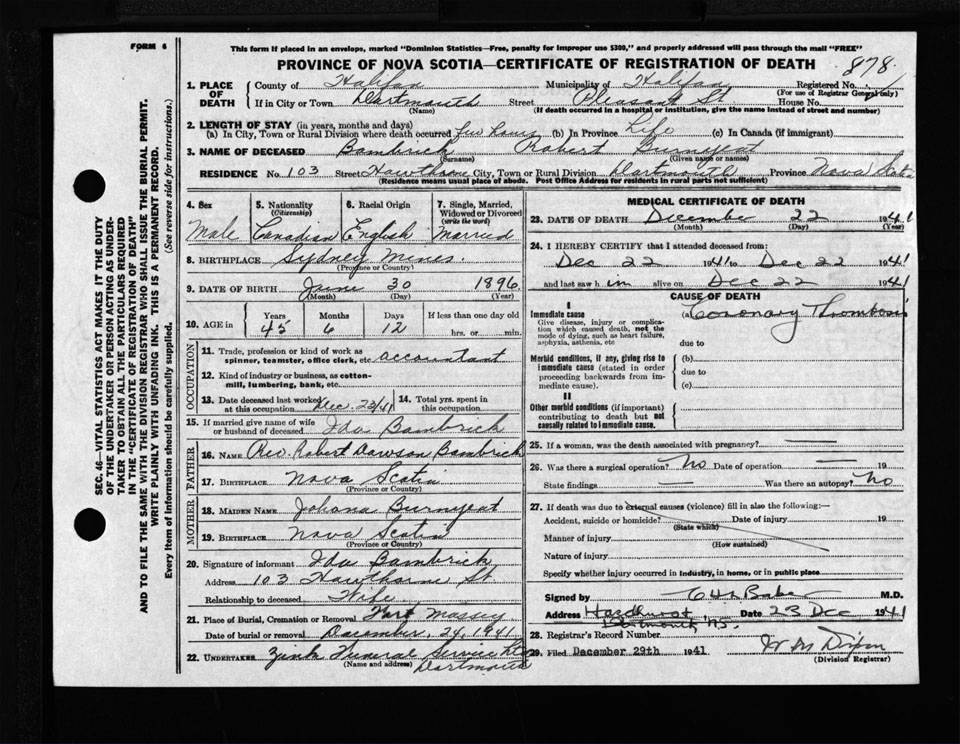 FORM 6
This form if placed in an envelope, marked "Dominion Statistics—Free, penalty for improper use $300," and properly addressed will pass through the mail "FREE"
PROVINCE OF NOVA SCOTIA—CERTIFICATE OF REGISTRATION OF DEATH
878
1. PLACE OF DEATH County of Halifax Municipality of Halifax Registered No.
(For use of Registrar General only)
If in City or Town Dartmouth Street Pleasant St House No.
(Name) (If death occurred in a hospital or institution, give the name instead of street and number)
2. LENGTH OF STAY (in years, months and days)
(a) In City, Town or Rural Division where death occurred few hours (b) In Province Life (c) In Canada (if immigrant)
3. NAME OF DECEASED Bambrick Robert Burnyeat
(Surname) (Given name or names)
RESIDENCE No. 103 Street Hawthorne City, Town or Rural Division Dartmouth Province Nova Scotia
(Residence means usual place of abode. Post Office Address for residents in rural parts not sufficient)
SEC. 46—VITAL STATISTICS ACT MAKES IT THE DUTY
OF THE UNDERTAKER OR PERSON ACTING AS UNDER-
TAKER TO OBTAIN ALL THE PARTICULARS REQUIRED
IN THE "CERTIFICATE OF REGISTRATION OF DEATH"
AND TO FILE THE SAME WITH THE DIVISION REGISTRAR WHO SHALL ISSUE THE BURIAL PERMIT.
WRITE PLAINLY WITH UNFADING INK. THIS IS A PERMANENT RECORD.
Every item of information should be carefully supplied. (See reverse side for instructions.)
4. Sex Male
5. Nationality (Citizenship) Canadian
6. Racial Origin English
7. Single, Married, Widowed or Divorced (write the word) Married
8. BIRTHPLACE Sydney Mines.
(Province or Country)
9. DATE OF BIRTH June 30 1896
(Month) (Day) (Year)
10. AGE in Years 45 Months 6 Days 12 If less than one day old
hrs. or min.
OCCUPATION
11. Trade, profession or kind of work as
spinner, teamster, office clerk, etc. accountant
12. Kind of industry or business, as cotton-
mill, lumbering, bank, etc.
13. Date deceased last worked at this occupation Dec. 22/41 14. Total yrs. spent in this occupation
15. If married give name of wife or husband of deceased Ida Bambrick
FATHER
16. NAME Rev. Robert Dawson Bambrick
17. BIRTHPLACE Nova Scotia
(Province or Country)
MOTHER
18. MAIDEN NAME Johana Burnyeat
19. BIRTHPLACE Nova Scotia
(Province or Country)
20. Signature of informant Ida Bambrick
Address 103 Hawthorne St
Relationship to deceased Wife
21. Place of Burial, Cremation or Removal Fort Massey
Date of burial or removal December. 24, 1941
22. UNDERTAKER Zink Funeral Service Ltd
(Name and address) Dartmouth
MEDICAL CERTIFICATE OF DEATH
23. DATE OF DEATH December 22 1941
(Month) (Day)
24. I HEREBY CERTIFY that I attended deceased from:
Dec 22 1941 to Dec 22 1941
and last saw him alive on Dec 22 1941
CAUSE OF DEATH
I
Immediate cause (a) Coronary Thrombosis
Give disease, injury or complica-
tion which caused death, not the
mode of dying, such as heart failure,
asphyxia, asthenia, etc due to
Morbid conditions, if any, giving rise to (b)
immediate cause (stated in order due to
proceeding backwards from im- (c)
mediate cause).
II
Other morbid conditions (if important)
contributing to death but not
causally related to immediate cause.
25. If a woman, was the death associated with pregnancy? —
26. Was there a surgical operation? No Date of operation — 19
State findings — Was there an autopsy? No
27. If death was due to external causes (violence) fill in also the following:—
Accident, suicide or homicide? Date of injury 19
(State which)
Manner of injury
(How sustained)
Nature of injury
Specify whether injury occurred in industry, in home, or in public place
Signed by Baker M.D.
Address Dartmouth NS. Date 23 Dec 1941
28. Registrar's Record Number
29. Filed December 29th 1941 W M Dixon
(Division Registrar)